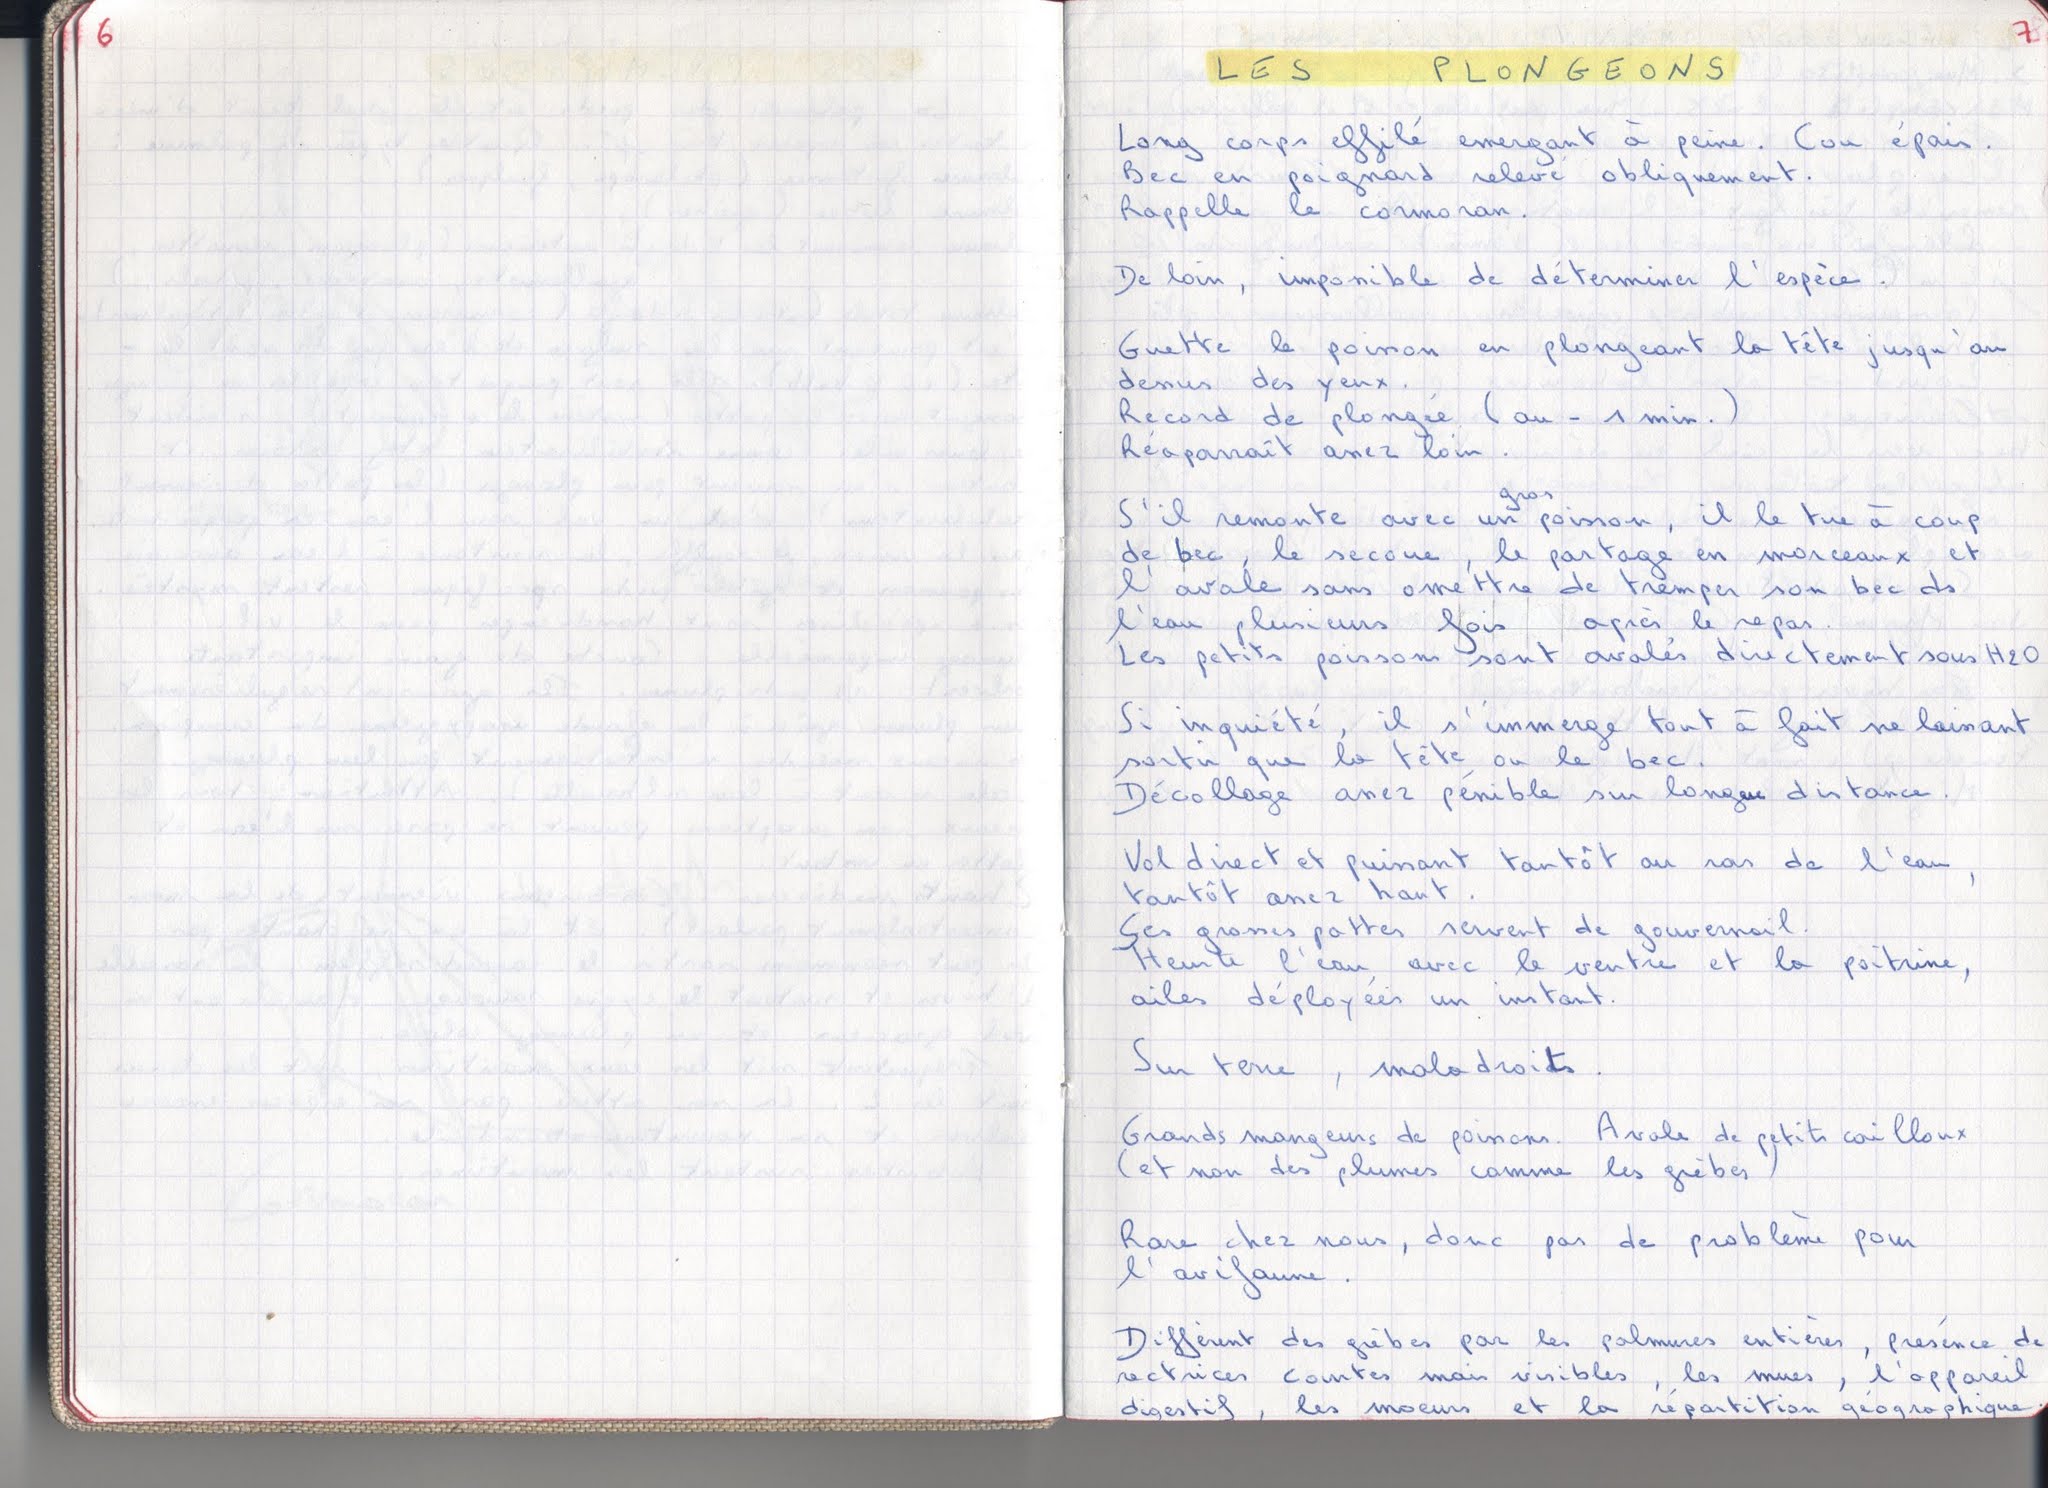 6
7
LES PLONGEONS
Long corps effilé emergant à peine. Cou épais.
Bec en poignard relevé obliquement.
Rappelle le cormoran.
De loin, impossible de déterminer l'espèce.
Guette le poisson en plongeant la tête jusqu'au
dessus des yeux.
Record de plongée (au - 1 min.)
Réaparraît assez loin.
S'il remonte avec un gros poisson, il le tue à coup
de bec, le secoue, le partage en morceaux et
l'avale sans omettre de tremper son bec ds
l'eau plusieurs fois après le repas.
Les petits poissons sont avalés directement sous H2O
Si inquiété, il s'immerge tout à fait ne laissant
sortir que la tête ou le bec.
Décollage assez pénible sur longue distance.
Vol direct et puissant tantôt au ras de l'eau,
tantôt assez haut.
Ses grosses pattes servent de gouvernail.
Heurte l'eau avec le ventre et la poitrine,
ailes déployées un instant.
Sur terre, maladroits.
Grands mangeurs de poissons. Avale de petits cailloux
(et non des plumes comme les grèbes)
Rare chez nous, donc pas de problème pour
l'avifaune.
Diffèrent des grèbes par les palmures entières, présence de
rectrices courtes mais visibles, les mues, l'appareil
digestif, les moeurs et la répartition géographique.